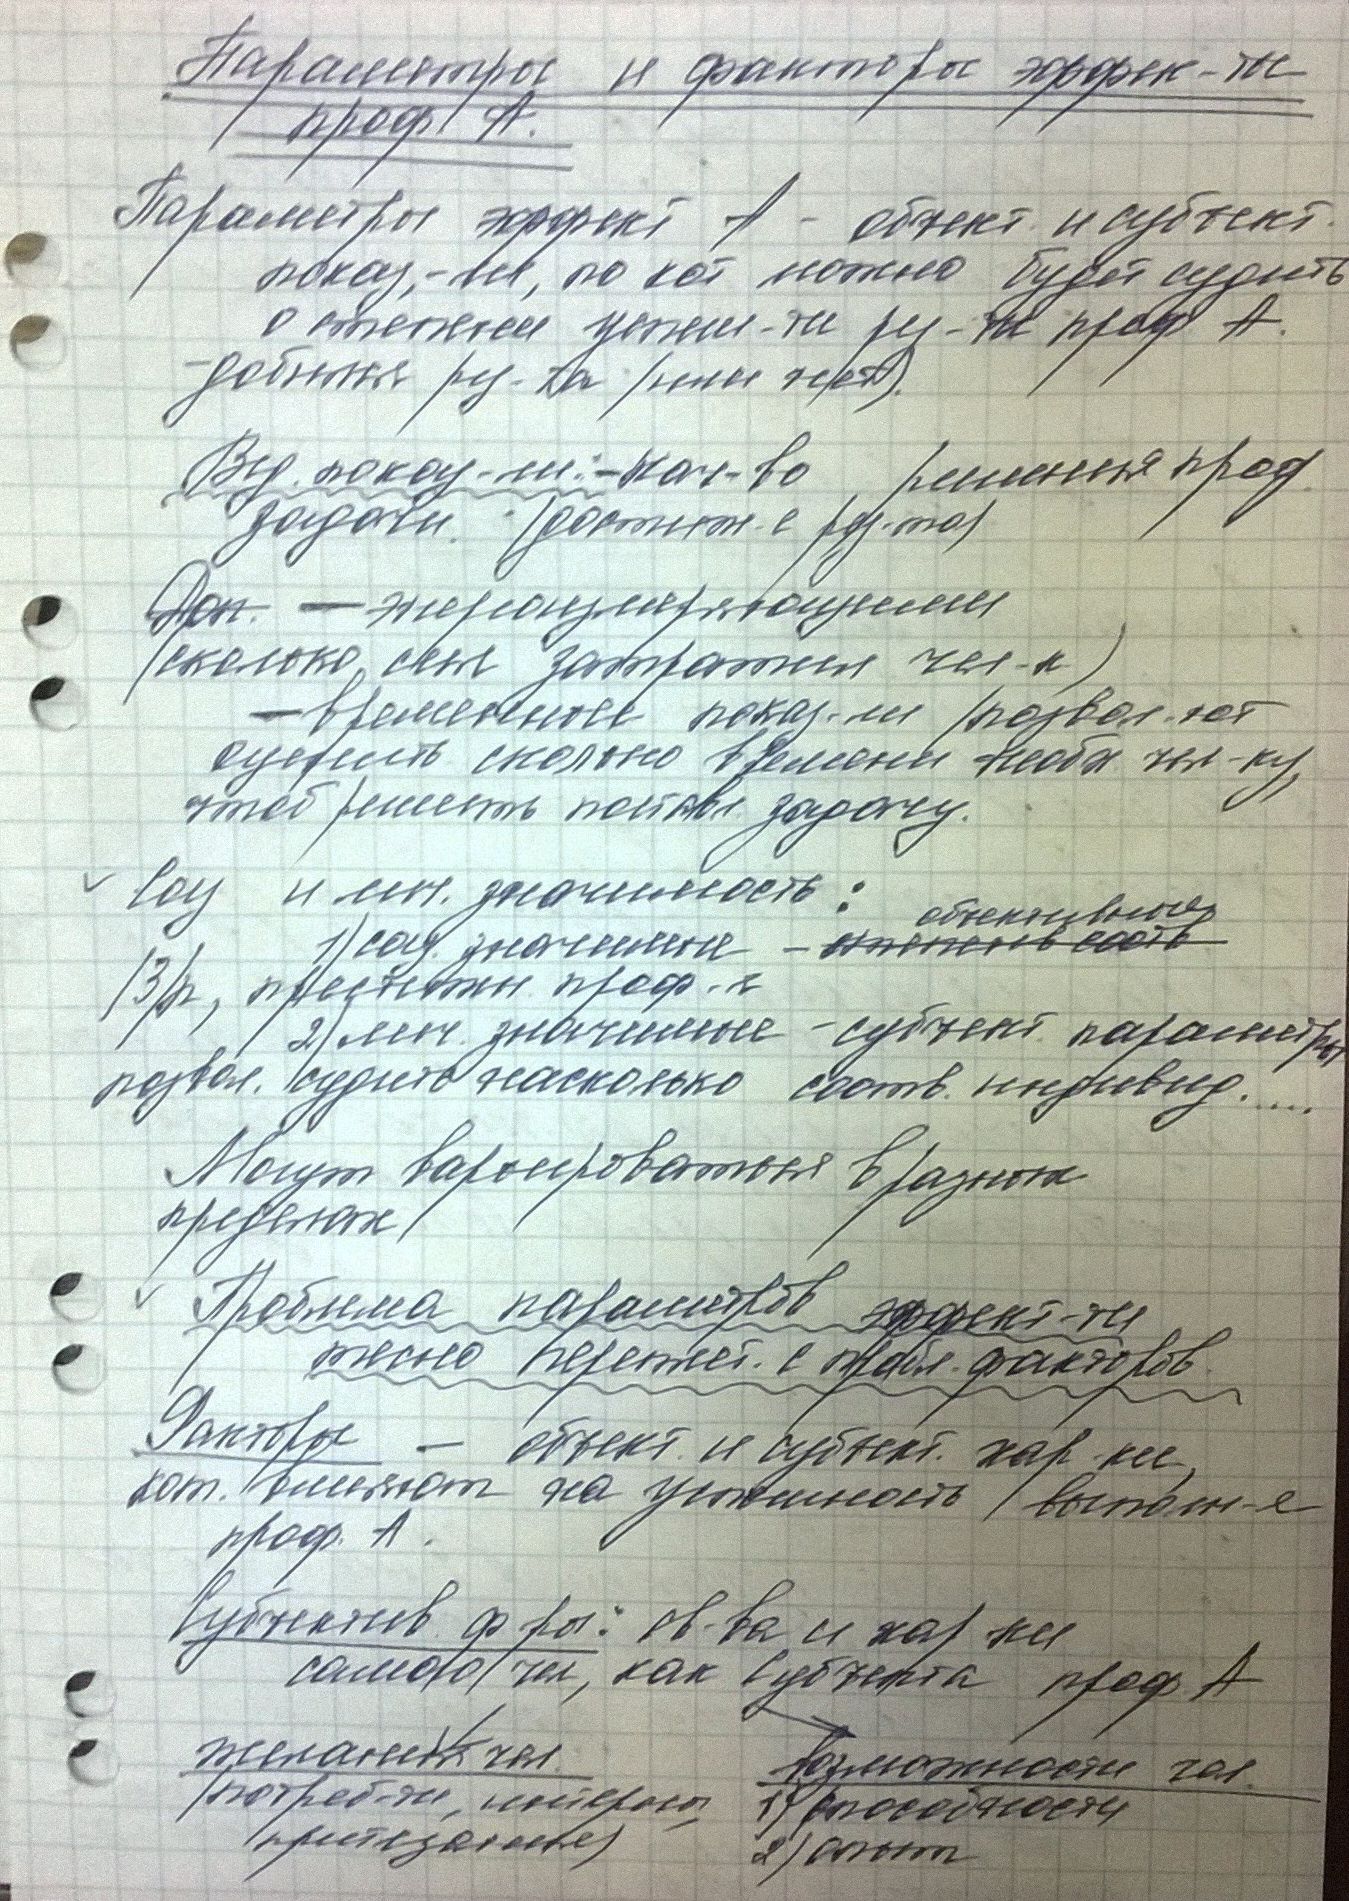 Параметры и факторы эффек-ти
проф А.
Параметры эффект А - объект. и субъект.
показ.-ли, по кот можно будет судить
о степени успеш-ти рез-ти проф А.
добиться рез-та (или нет).
Вед. показ-ли: - кач-во решения проф
задачи. (достиж-е рез-та)
Доп. — энергоизмеряющими
(сколько сил затратил чел-к)
— временные показ-ли (позвол-ют
оценить сколько времени необх чел-ку,
чтоб решить поставл. задачу.
✓ Соц и лич. значимость:
объективные
1) соц. значимые -
(З/п, престижн. проф.-я
2) лич. значимые - субъект. параметры
позвол. судить насколько соотв. индивид.....
Могут варьироваться в разных
пределах
✓ Проблема параметров эффект-ти
тесно переплет. с пробл. факторов.
Факторы — объект. и субъект. хар-ки,
кот. влияют на успешность выполн-я
проф. А.
Субъектив. ф-ры: св-ва и хар-ки
самого чел, как субъекта проф А
желания чел. Возможности чел.
(потреб-ти, интересы, 1) способности
притязания) 2) опыт